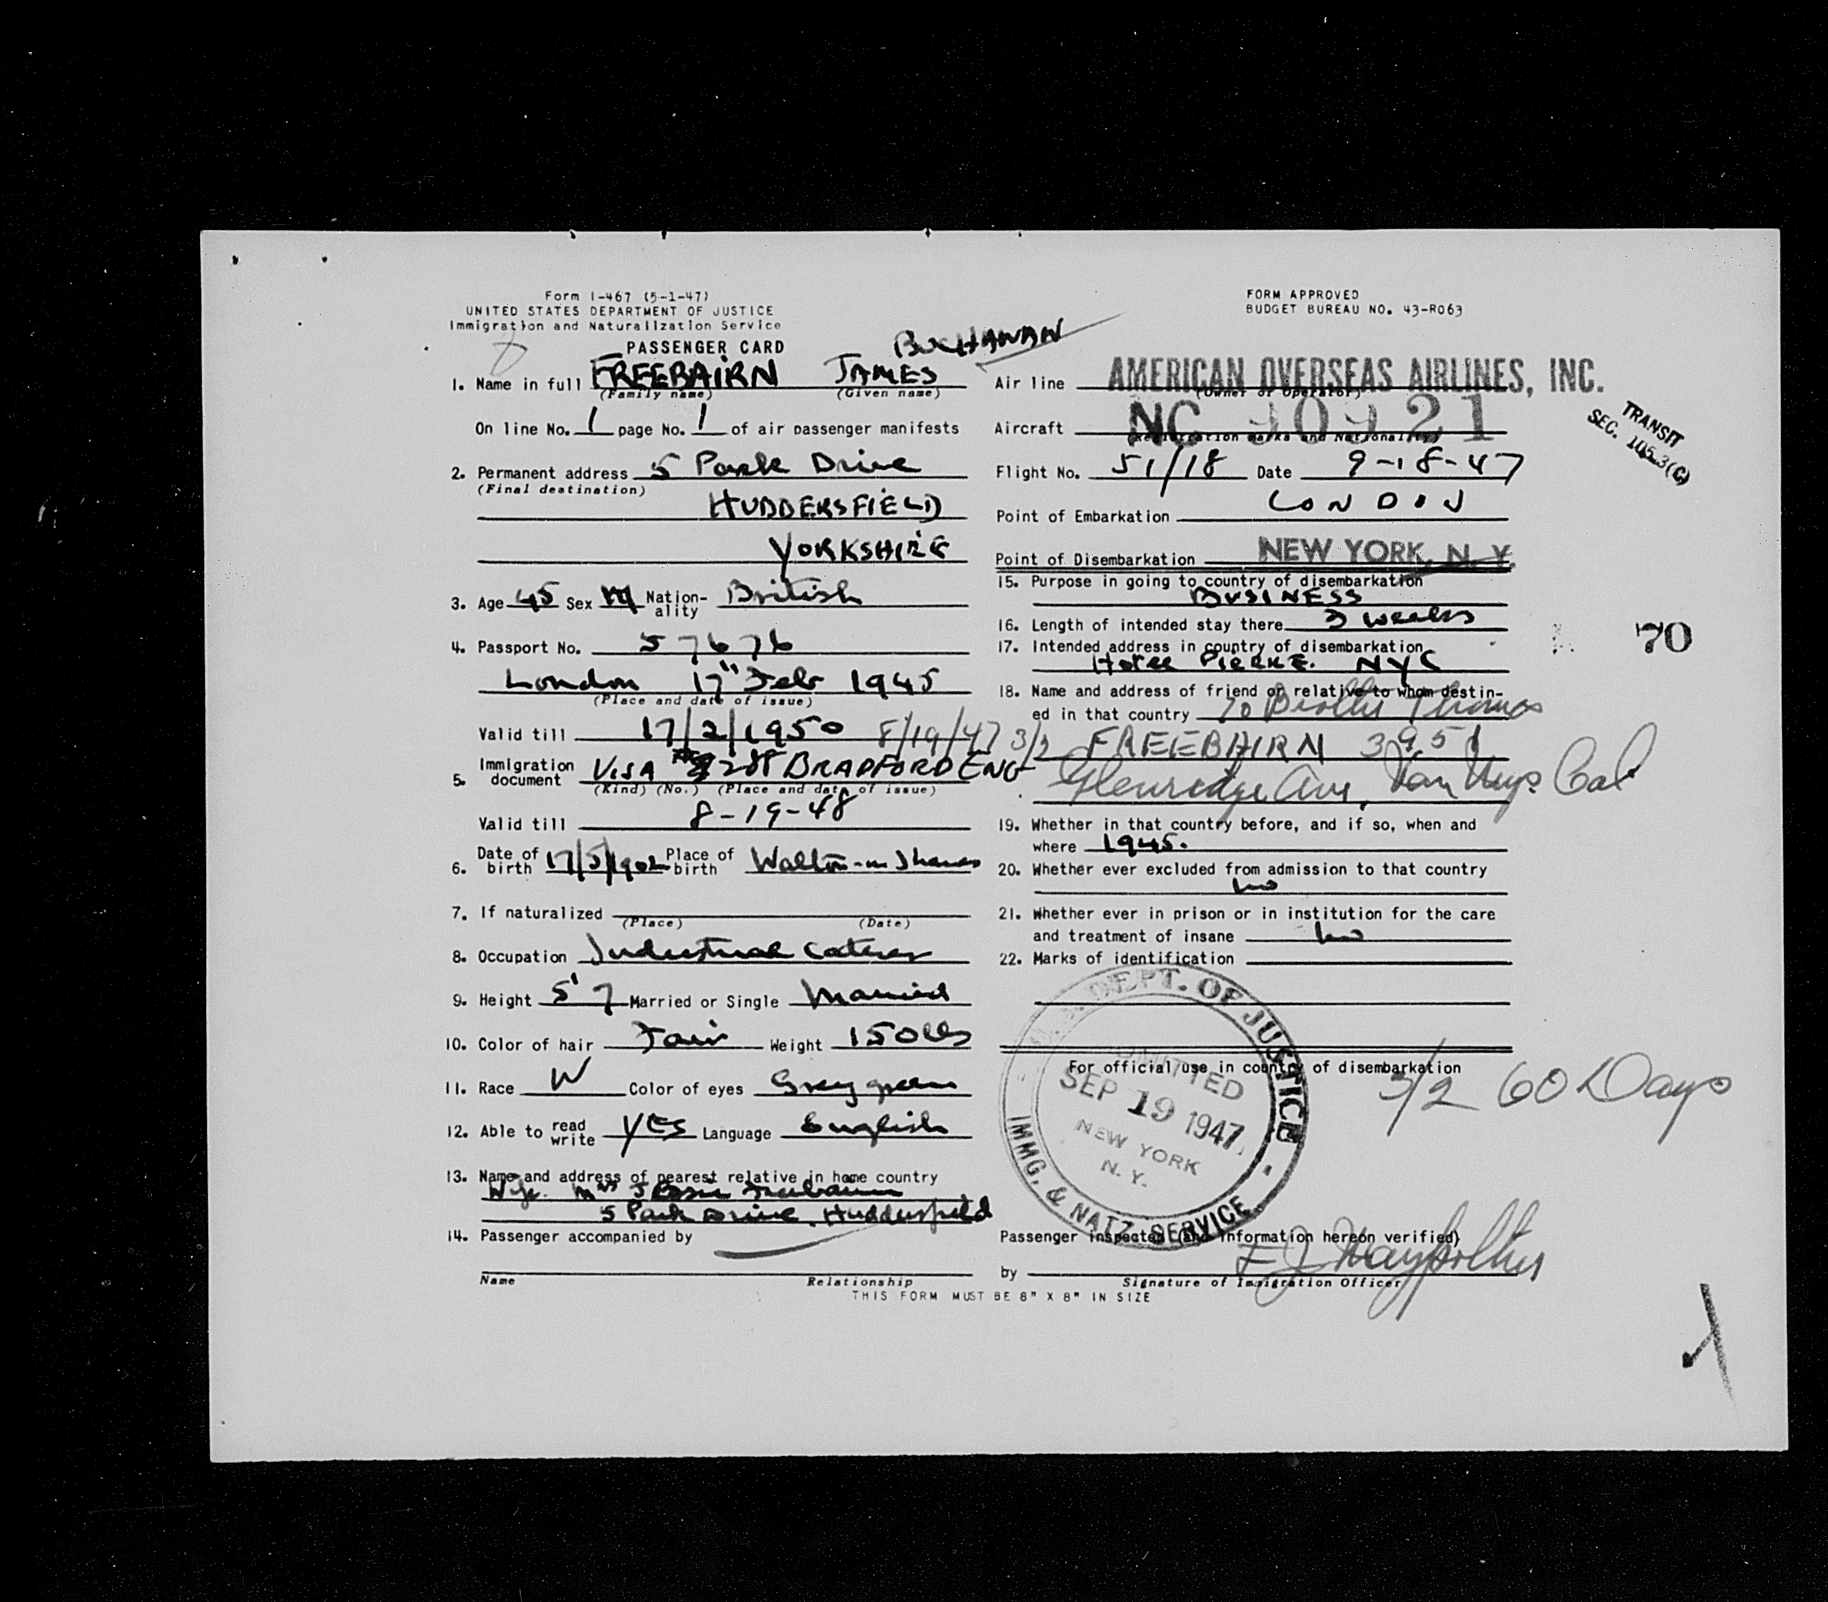 Form I-467 (5-1-47)
UNITED STATES DEPARTMENT OF JUSTICE
Immigration and Naturalization Service
PASSENGER CARD
BUCHANAN
1. Name in full FREEBAIRN JAMES
(Family name) (Given name)
On line No. 1 page No. 1 of air passenger manifests
2. Permanent address 5 Park Drive
(Final destination)
HUDDERSFIELD
YORKSHIRE
3. Age 45 Sex M Nation-ality British
4. Passport No. 57676
London 17" Feb 1945
(Place and date of issue)
Valid till 17/2/1950 8/19/47 3/2
5. Immigration document VISA 2288 BRADFORD ENG
(Kind) (No.) (Place and date of issue)
Valid till 8-19-48
6. Date of birth 17/5/1902 Place of birth Walton-on-Thames
7. If naturalized
(Place) (Date)
8. Occupation Industrial Caterer
9. Height 5' 7 Married or Single Married
10. Color of hair Fair Weight 150 lbs
11. Race W Color of eyes Grey green
12. Able to read write YES Language English
13. Name and address of nearest relative in home country
Wife. Mrs Jessie Freebairn
5 Park Drive. Huddersfield
14. Passenger accompanied by
Name Relationship
FORM APPROVED
BUDGET BUREAU NO. 43-R063
Air line AMERICAN OVERSEAS AIRLINES, INC.
(Owner or Operator)
Aircraft NC 90921
(Registration marks and Nationality)
TRANSIT
SEC. 105.3(C)
Flight No. 51/18 Date 9-18-47
Point of Embarkation LONDON
Point of Disembarkation NEW YORK, N. Y.
15. Purpose in going to country of disembarkation
BUSINESS
16. Length of intended stay there 3 weeks
17. Intended address in country of disembarkation
Hotel PIERRE. NYC
70
18. Name and address of friend or relative to whom destin-
ed in that country To Brother Thomas
FREEBAIRN 3951
Glenridge Ave, Van Nuys. Cal
19. Whether in that country before, and if so, when and
where 1945.
20. Whether ever excluded from admission to that country
No
21. Whether ever in prison or in institution for the care
and treatment of insane No
22. Marks of identification
U.S. DEPT. OF JUSTICE
ADMITTED
SEP 19 1947
NEW YORK
N. Y.
IMMG. & NATZ. SERVICE
For official use in country of disembarkation
3/2 60 Days
Passenger inspected (and information hereon verified)
by
Signature of Immigration Officer
THIS FORM MUST BE 8" X 8" IN SIZE